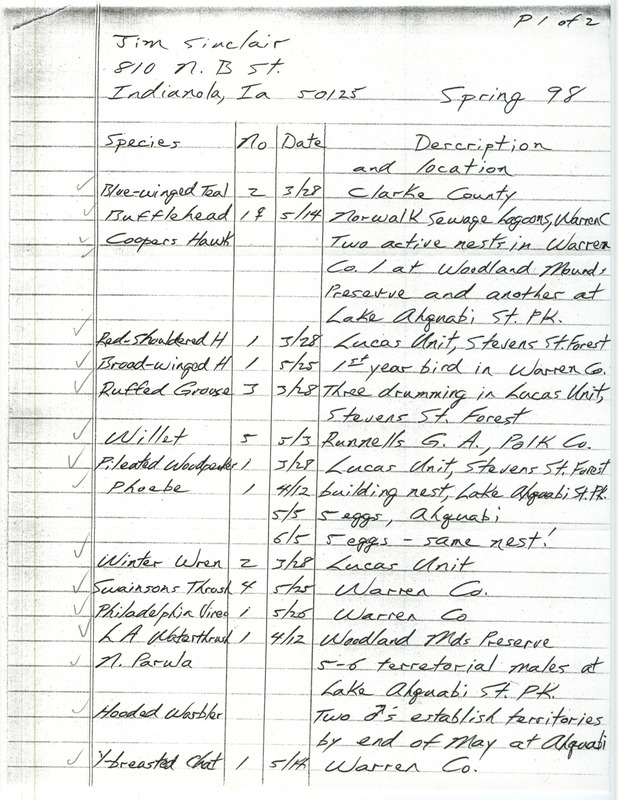 P 1 of 2
Jim Sinclair
810 N. B St.
Indianola, Ia 50125 Spring 98
Species No Date Description
and location
Blue-winged Teal 2 3/28 Clarke County
Bufflehead 1♀ 5/14 Norwalk Sewage Lagoons, Warren C
Coopers Hawk Two active nests in Warren
Co. 1 at Woodland Mounds
Preserve and another at
Lake Ahquabi St. PK.
Red-shouldered H 1 3/28 Lucas Unit, Stevens St. Forest
Broad-winged H 1 5/25 1st year bird in Warren Co.
Ruffed Grouse 3 3/28 Three drumming in Lucas Unit,
Stevens St. Forest
Willet 5 5/3 Runnells G. A., Polk Co.
Pileated Woodpecker 1 3/28 Lucas Unit, Stevens St. Forest
Phoebe 1 4/12 building nest, Lake Ahquabi St. Pk.
5/5 5 eggs, Ahquabi
6/5 5 eggs - same nest!
Winter Wren 2 3/28 Lucas Unit
Swainsons Thrush 4 5/25 Warren Co.
Philadelphia Vireo 1 5/26 Warren Co
LA Waterthrush 1 4/12 Woodland Mds Preserve
N. Parula 5-6 territorial males at
Lake Ahquabi St. PK.
Hooded Warbler Two ♂'s establish territories
by end of May at Ahquabi
Y-breasted Chat 1 5/14 Warren Co.